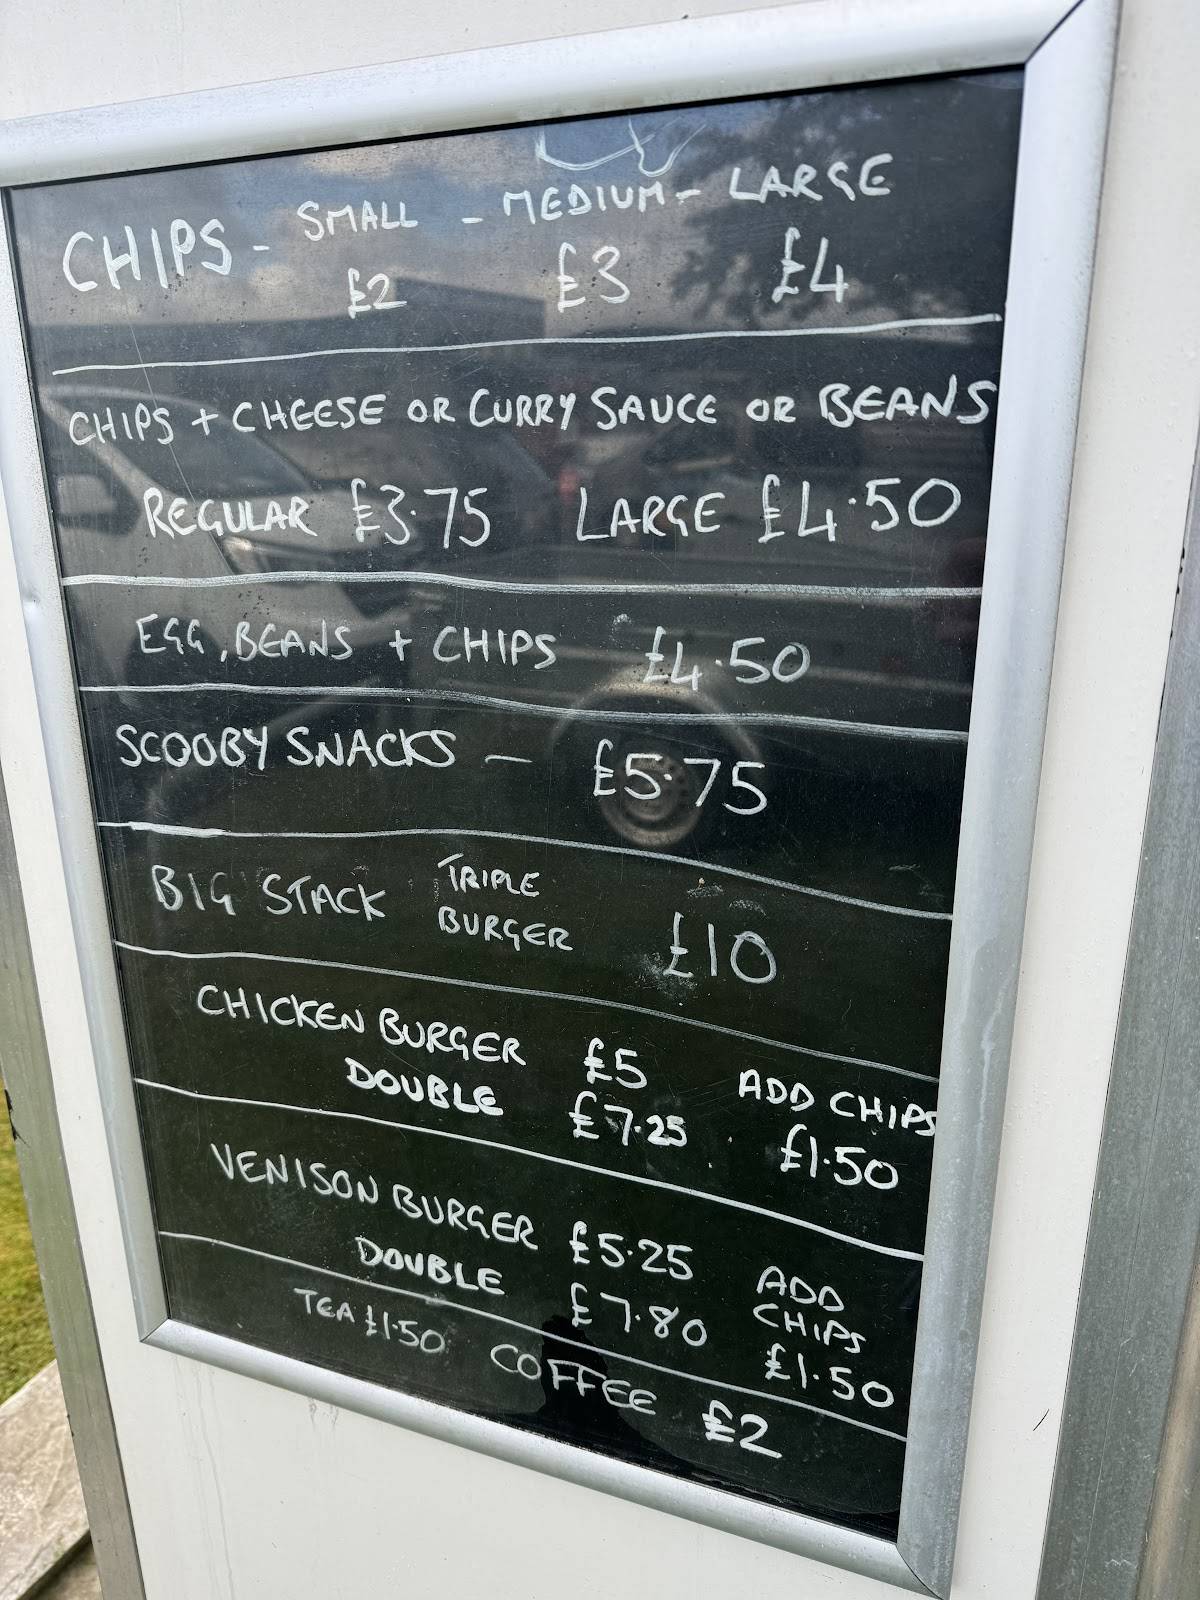 CHIPS - SMALL - MEDIUM - LARGE
£2 £3 £4
CHIPS + CHEESE OR CURRY SAUCE OR BEANS
REGULAR £3.75 LARGE £4.50
EGG, BEANS + CHIPS £4.50
SCOOBY SNACKS — £5.75
BIG STACK TRIPLE BURGER £10
CHICKEN BURGER £5
DOUBLE £7.25
ADD CHIPS
£1.50
VENISON BURGER £5.25
DOUBLE £7.80
ADD
CHIPS
£1.50
TEA £1.50 COFFEE £2